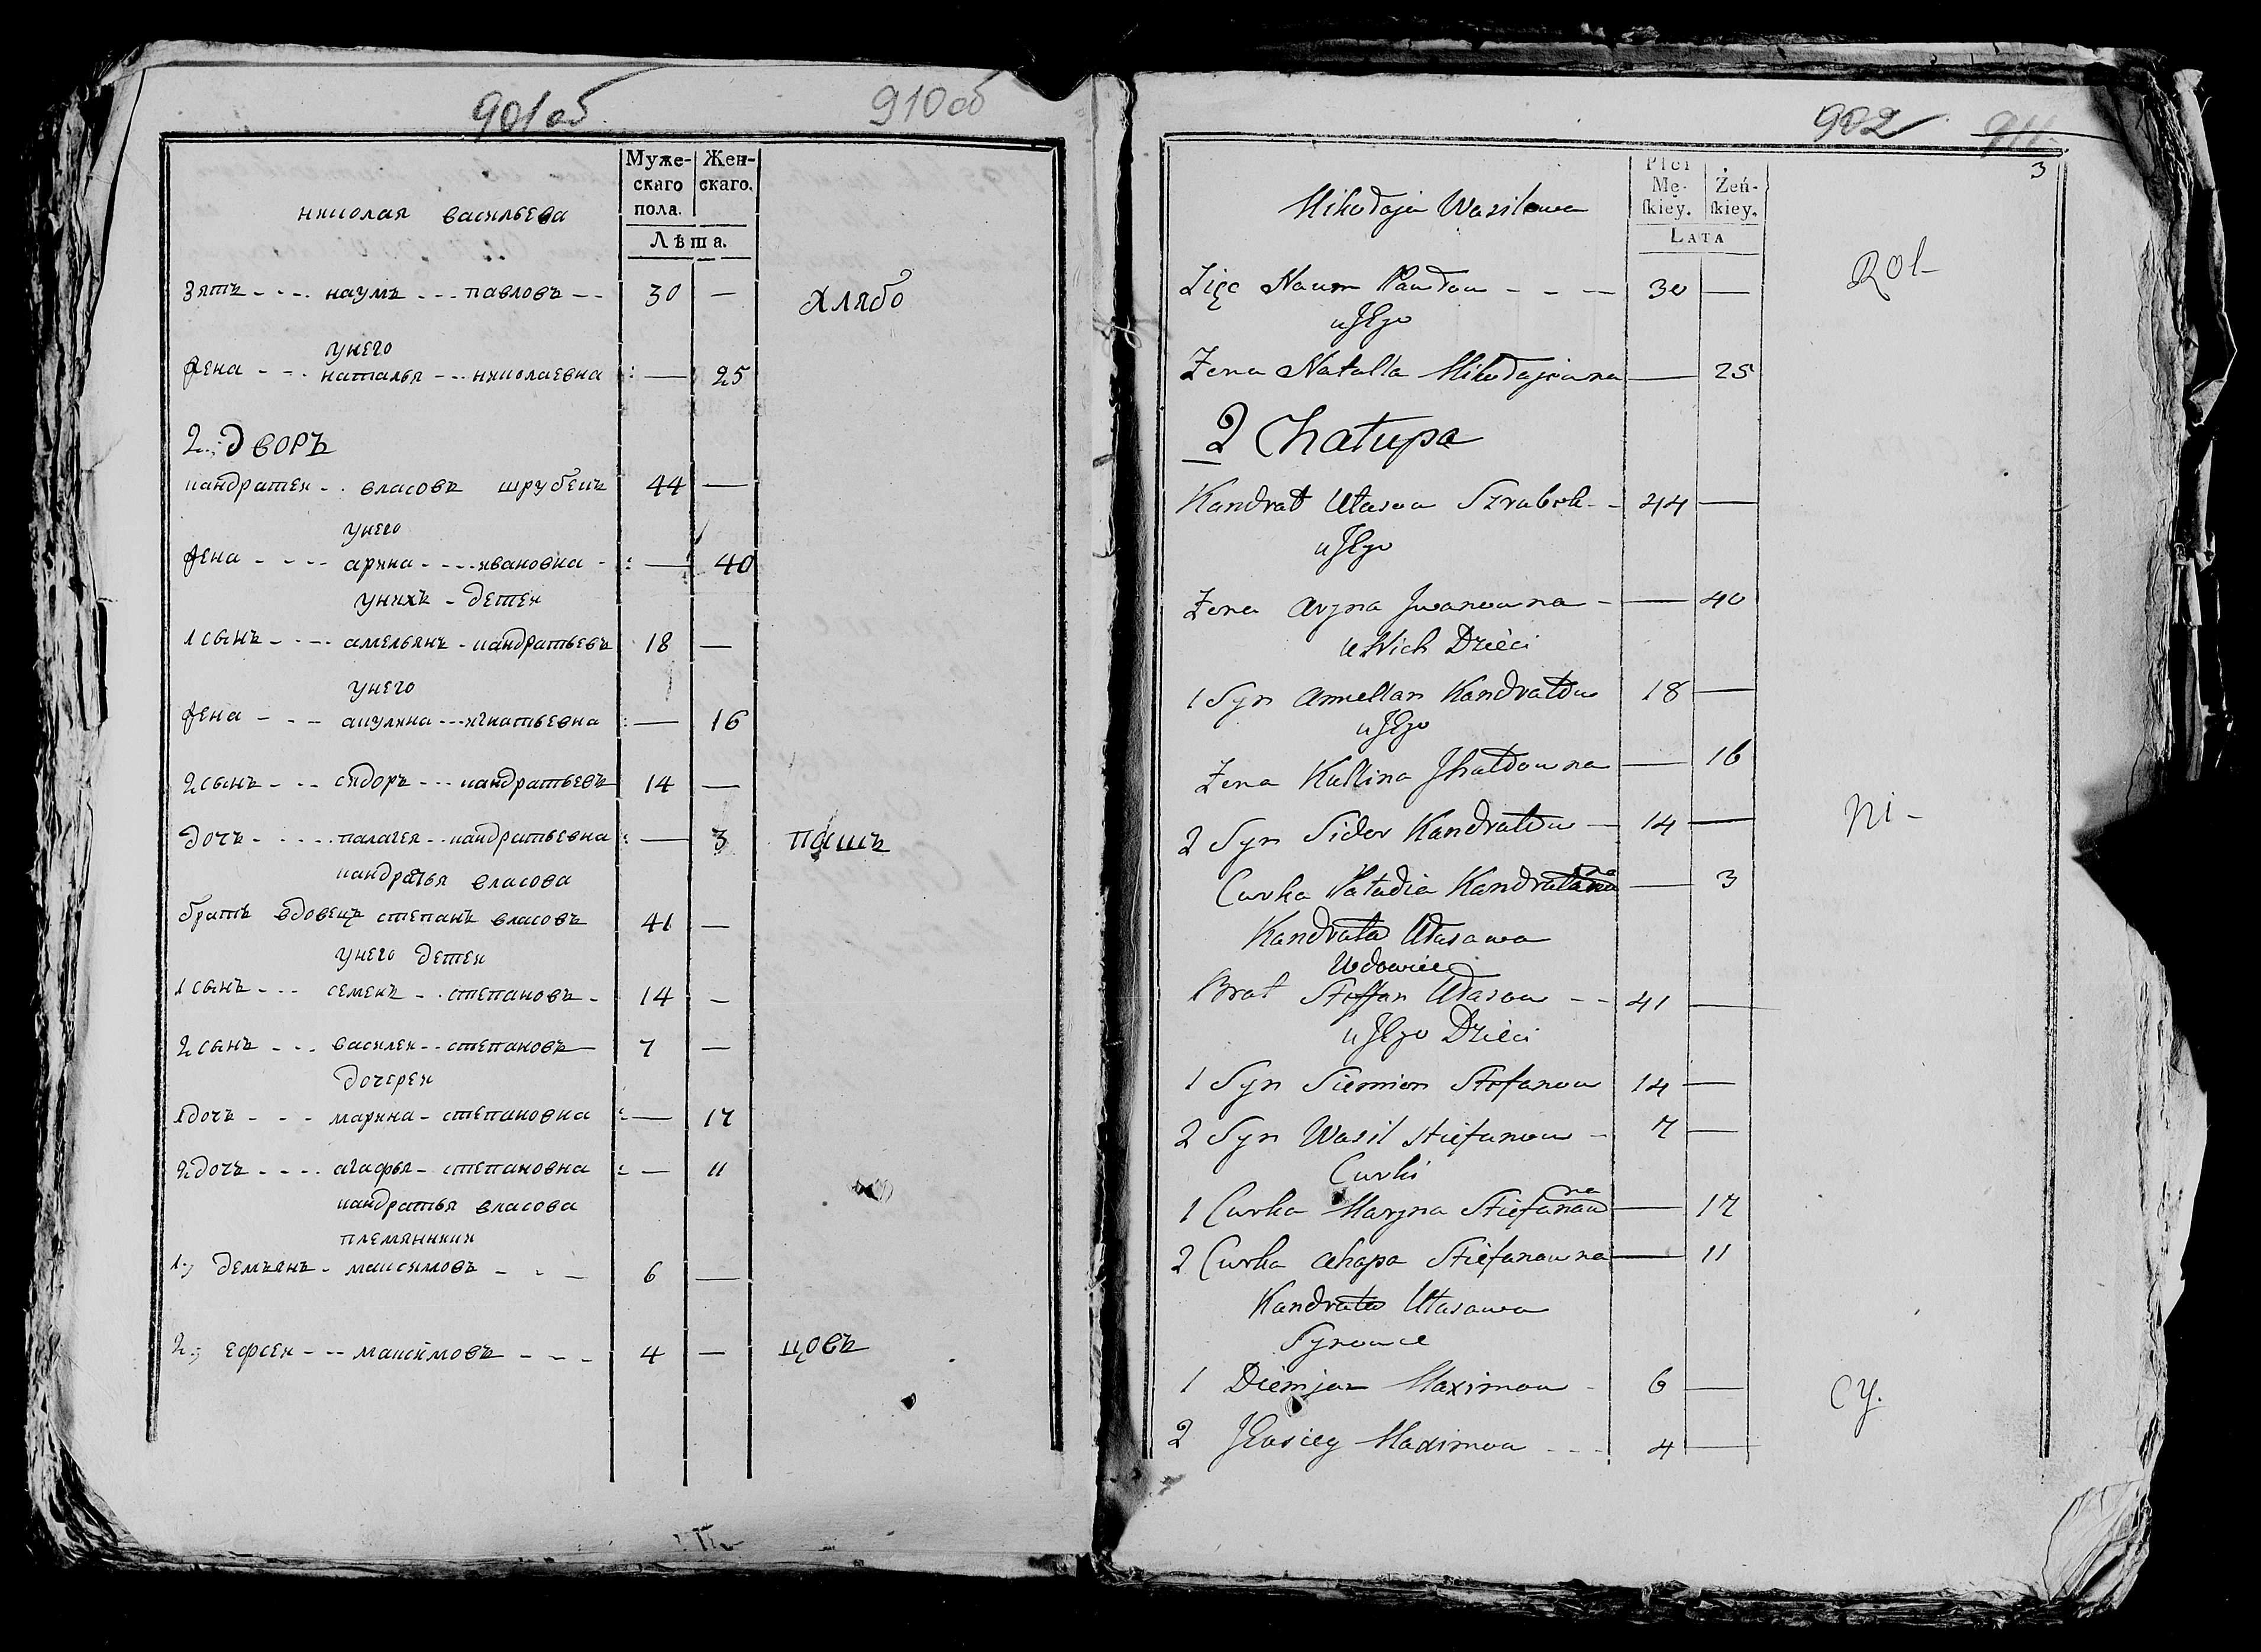 901об 910об
Муже- Жен-
скаго скаго.
пола.
Лѣта.
николая васильева
зять - - - наумъ - - - павловъ - - 30 —
хлябо
унего
жена - - - наталья - - - николаевна — 25
2.; дворъ
кандратеи - - власовъ шрубекъ 44 —
унего
жена - - - - арина - - - - ивановна - — 40
унихъ - детеи
1 сынъ - - - - амельянъ - кандратьевъ 18 —
унего
жена - - - акулина - - - игнатьевна — 16
2 сынъ - - - сидоръ - - - кандратьевъ 14 —
дочь - - - - - палагея - - кандратьевна — 3
пашъ
кандратья власова
братъ вдовецъ степанъ власовъ 41 —
унего детеи
1 сынъ - - - семенъ - - степановъ - 14 —
2 сынъ - - - василеи - - степановъ 7 —
дочереи
1 дочь - - - марина - степановна — 17
2 дочь - - - - агафья - степановна — 11
кандратья власова
племянники
1.; демьянъ - максимовъ - - - 6 —
2.; ефсеи - - - максимовъ - - - 4 —
цовъ
902 911
3
Płci
Mę- Żeń-
skiey. skiey.
LATA
Mikołaja Wasilowa
Zięc Naum Pawłow - - - 30 —
Rol-
u Jego
Zena Natalla Mikołajowna — 25
2 Chałupa
Kandrat Ułasow Szrubek - - 44 —
u Jego
Zena Aryna Jwanowna - — 40
u Nich Dzieci
1 Syn Amellan Kandratow 18 —
u Jego
Zena Kullina Jhnatowna — 16
2 Syn Sidor Kandratow - 14 —
Ni-
Curka Kandratowna — 3
Kandrata Ułasowa
Wdowiec
Brat Steffan Ułasow - - 41 —
u Jego Dzieci
1 Syn Siemion Stefanow 14 —
2 Syn Wasil Stiefanow - 7 —
Curki
1 Curka Maryna Stiefanowna — 17
2 Curka Ahapa Stiefanowna — 11
Kandrata Ułasowa
Synowce
1 Diemjan Maximow - 6 —
cy.
2 Jewsiey Maximow - - - 4 —